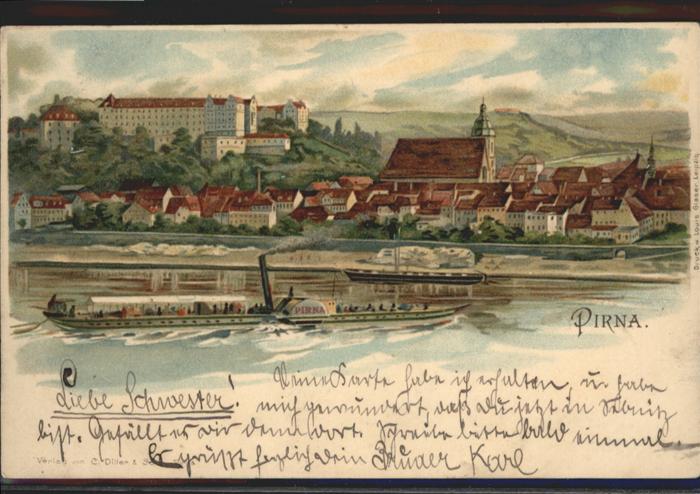 PIRNA
PIRNA.
Druck Louis Glaser, Leipzig
Liebe Schwester! Deine Karte habe ich erhalten, u. habe
mich gewundert, daß du jetzt in Sebnitz
bist. Gefällt es dir denn dort. Schreibe bitte bald einmal.
Es grüßt herzlich dein Bruder Karl
Verlag von C. Diller &